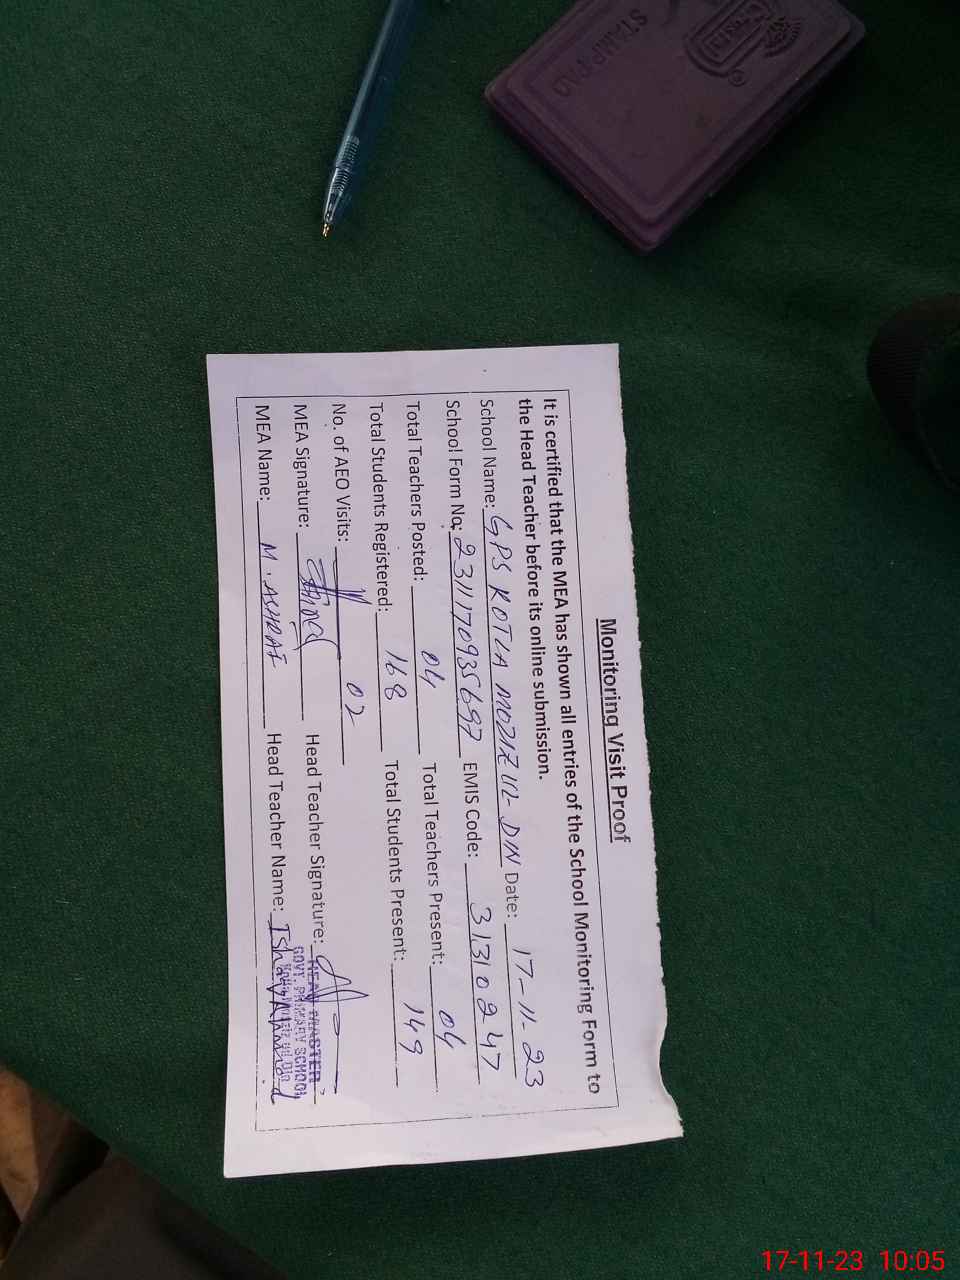 STAMP PAD
Monitoring Visit Proof
It is certified that the MEA has shown all entries of the School Monitoring Form to
the Head Teacher before its online submission.
School Name: GPS KOTLA MOZIZ UL DIN Date: 17-11-23
School Form No: 2311170935697 EMIS Code: 31310247
Total Teachers Posted: 04 Total Teachers Present: 04
Total Students Registered: 168 Total Students Present: 149
No. of AEO Visits: 02
MEA Signature: Head Teacher Signature:
MEA Name: M. ASHRAF Head Teacher Name: Ishaq Ahmad
HEAD MASTER
GOVT. PRIMARY SCHOOL
17-11-23 10:05